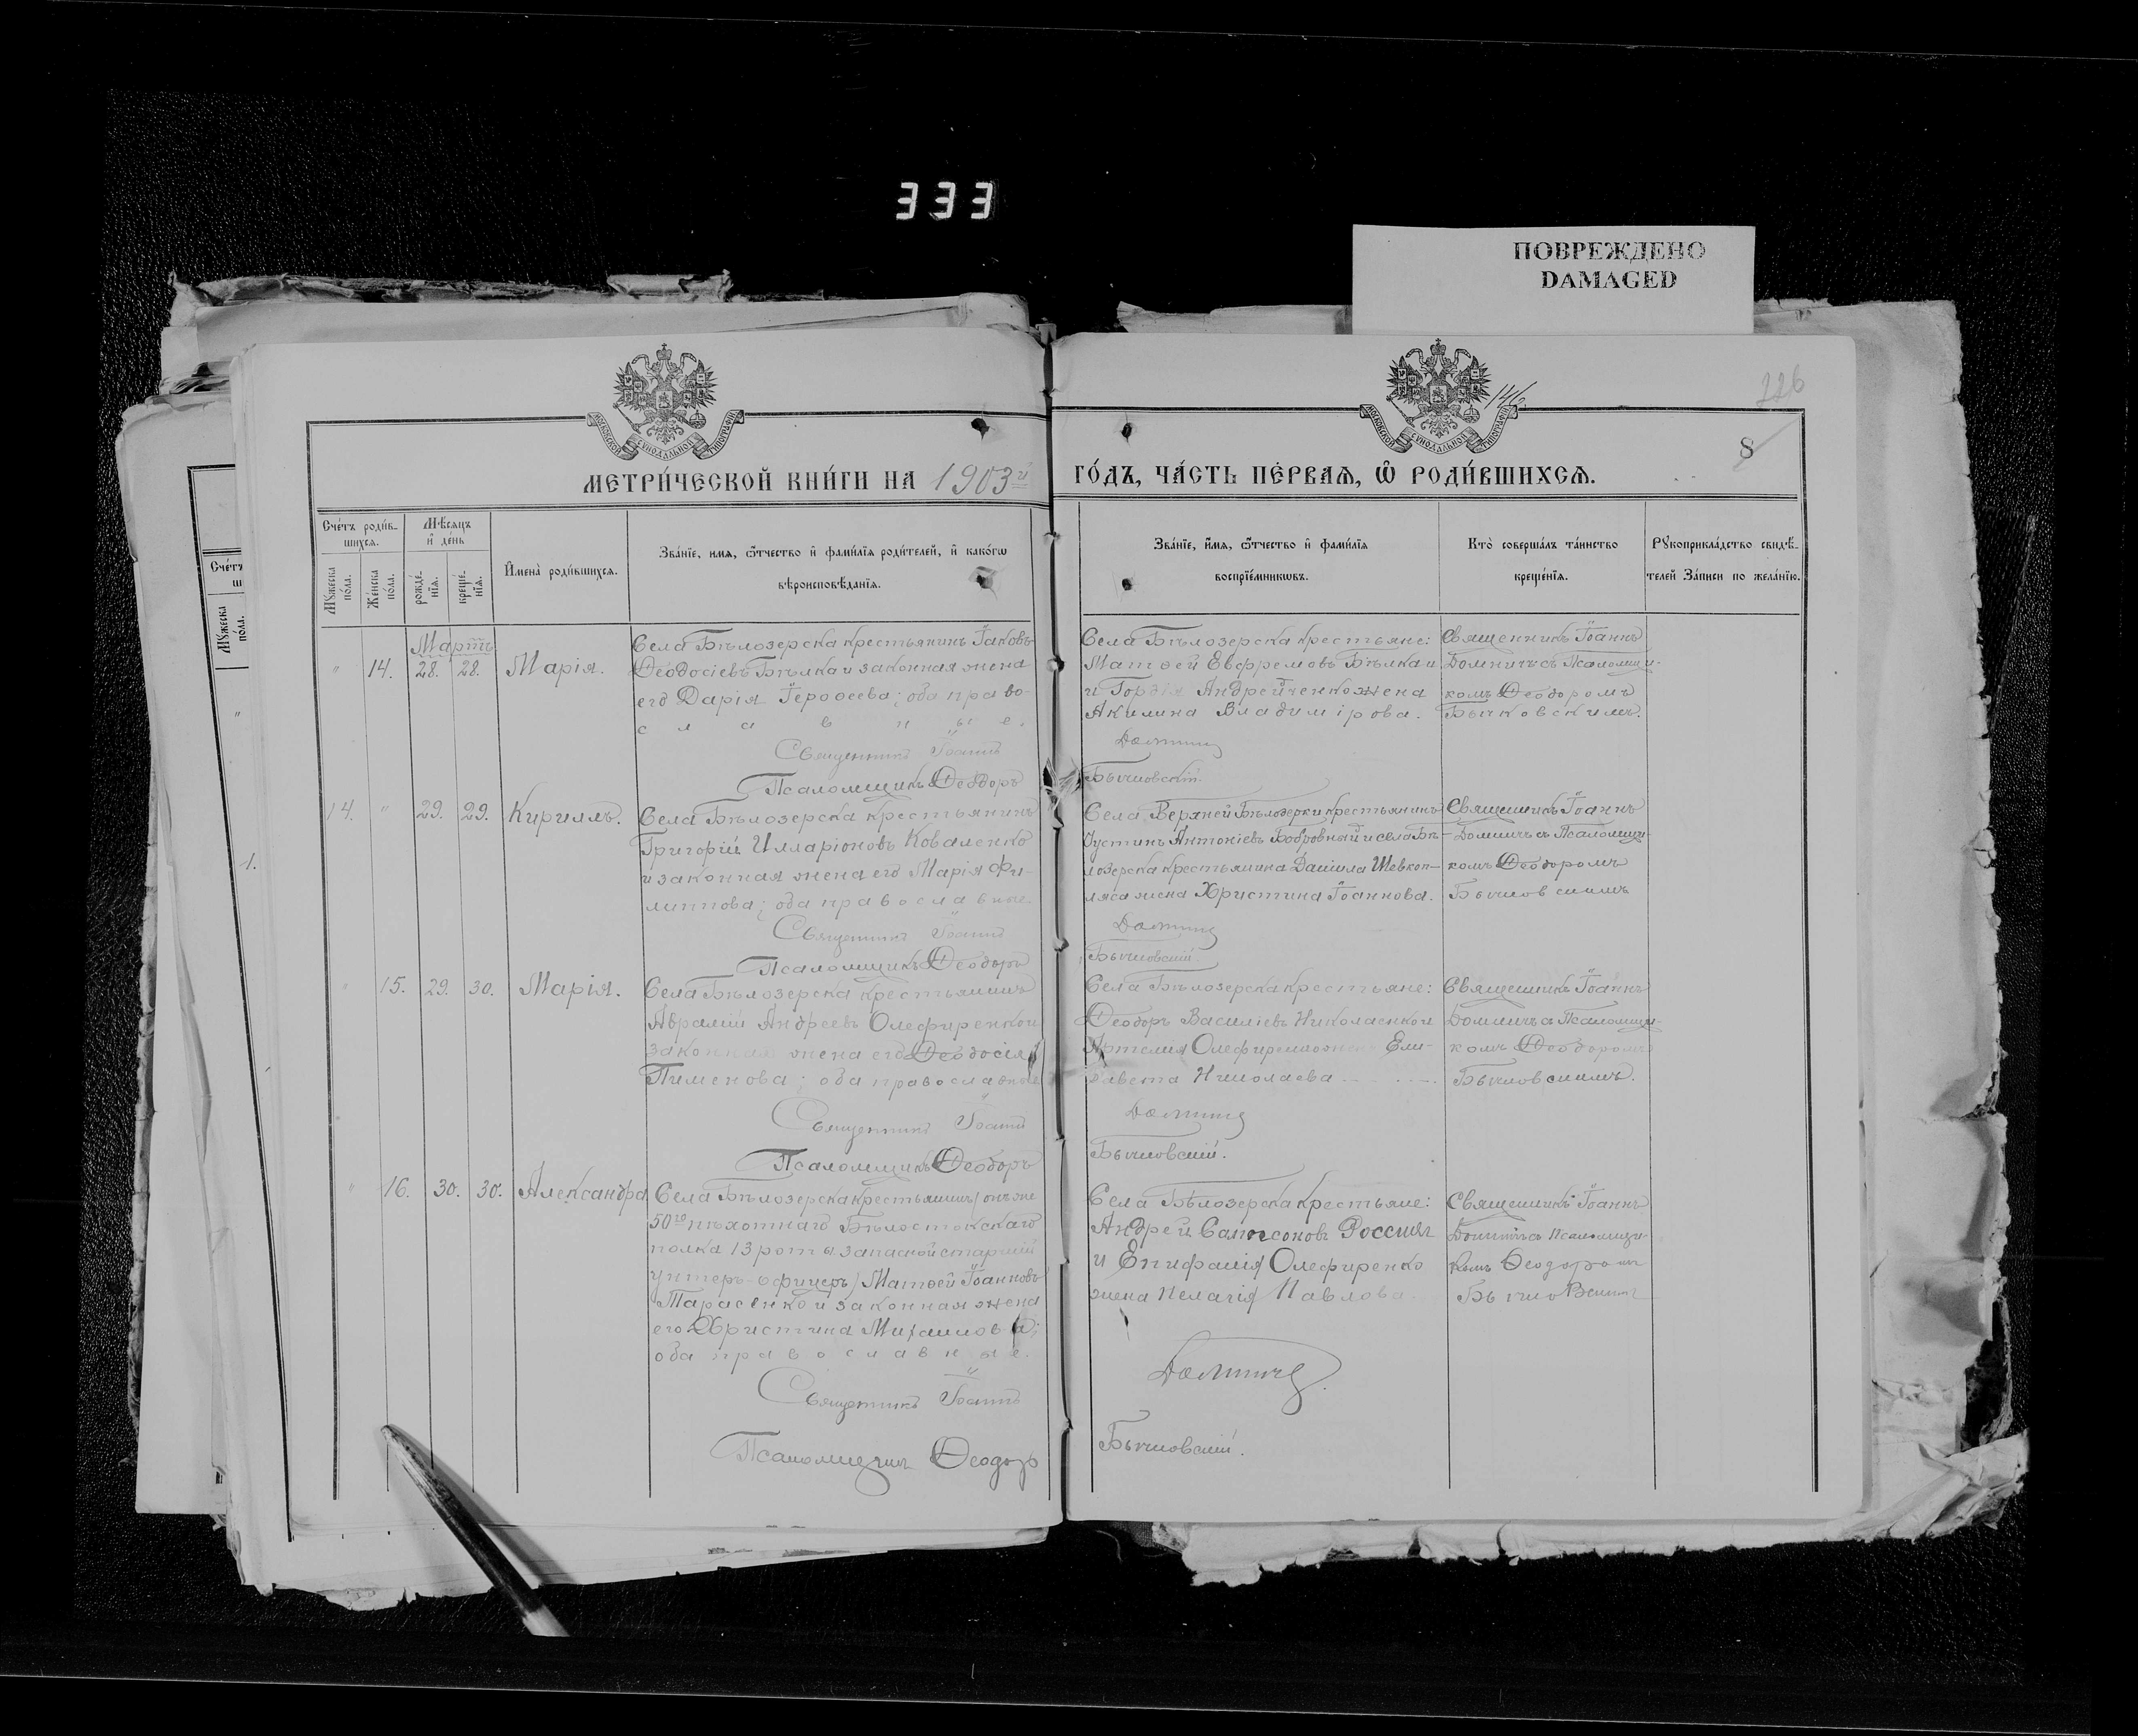 333
ПОВРЕЖДЕНО
DAMAGED
146
226
8
МОСКОВСКОЙ СѴНОДАЛЬНОЙ ТИПОГРАФІИ
МОСКОВСКОЙ СѴНОДАЛЬНОЙ ТИПОГРАФІИ
МЕТРИ́ЧЕСКОЙ КНИ́ГИ НА 1903й ГО́ДЪ, ЧА́СТЬ ПЕ́РВАѦ, Ѽ РОДИ́ВШИХСѦ.
Сче́тъ роди́в-
шихсѧ.
Мꙋжеска по́ла.
Же́нска по́ла.
Мѣ́сяцъ
и҆ де́нь
рожде́нїѧ.
креще́нїѧ.
И҆мена̀ роди́вшихсѧ.
Зва́нїе, имѧ, ѻ҆́тчество и҆ фами́лїѧ роди́телей, и҆ како́гѡ
вѣроисповѣ́данїѧ.
Зва́нїе, и҆́мѧ, ѻ҆́тчество и҆ фами́лїѧ
воспрїе́мникѡвъ.
Кто̀ соверша́лъ та́инство
креще́нїѧ.
Рꙋкоприкла́дство свидѣ́-
телей за́писи по жела́нїю.
Сче́тъ
Мꙋжеска
по́ла.
1.
Мартъ
" 14. 28. 28. Марія.
Села Бѣлозерска крестьянинъ Іаковъ
Ѳеодосіевъ Бѣлка и законная жена
его Дарія Іероѳеева; оба право-
славные.
Священникъ Іоаннъ
Псаломщикъ Ѳеодоръ
Села Бѣлозерска крестьяне:
Матѳей Евфремовъ Бѣлка и
и Гордія Андрейченко жена
Акилина Владимірова.
Доминич
Бычковскій.
Священникъ Іоаннъ
Доминичъ съ Псаломщи-
комъ Ѳеодоромъ
Бычковскимъ.
14. " 29. 29. Кириллъ.
Села Бѣлозерска крестьянинъ
Григорій Илларіоновъ Коваленко
и законная жена его Марія Фи-
липпова; оба православные
Священникъ Іоаннъ
Псаломщикъ Ѳеодоръ
Села Верхней Бѣлозерки крестьянинъ
Іустинъ Антоніевъ Бобровный и села Бѣ-
лозерска крестьянина Даніила Шевкоп-
ляса жена Христина Іоаннова.
Доминич
Бычковскій.
Священникъ Іоаннъ
Доминичъ съ Псаломщи-
комъ Ѳеодоромъ
Бычковскимъ
" 15. 29. 30. Марія.
Села Бѣлозерска крестьянинъ
Авраамій Андреевъ Олефиренко и
законная жена его Ѳеодосія
Пименова; оба православные
Священникъ Іоаннъ
Псаломщикъ Ѳеодоръ
Села Бѣлозерска крестьяне:
Ѳеодоръ Василіевъ Николаенко и
Артемія Олефиренко жена Ели-
савета Николаева
Доминич
Бычковскій.
Священникъ Іоаннъ
Доминичъ съ Псаломщи-
комъ Ѳеодоромъ
Бычковскимъ.
" 16. 30. 30. Александра
Села Бѣлозерска крестьянинъ (онъ же
50го пѣхотнаго Бѣлостокскаго
полка 13 роты запасной старшій
унтеръ-офицеръ) Матѳей Іоанновъ
Тарасенко и законная жена
его Христина Михаилова;
оба православные.
Священникъ Іоаннъ
Псаломщикъ Ѳеодор
Села Бѣлозерска крестьяне:
Андрей Сампсоновъ
и Епифанія Олефиренко
жена Пелагія Павлова.
Доминич.
Бычковскій.
Священникъ Іоаннъ
Доминичъ съ Псаломщи-
комъ Ѳеодоромъ
Бычковскимъ